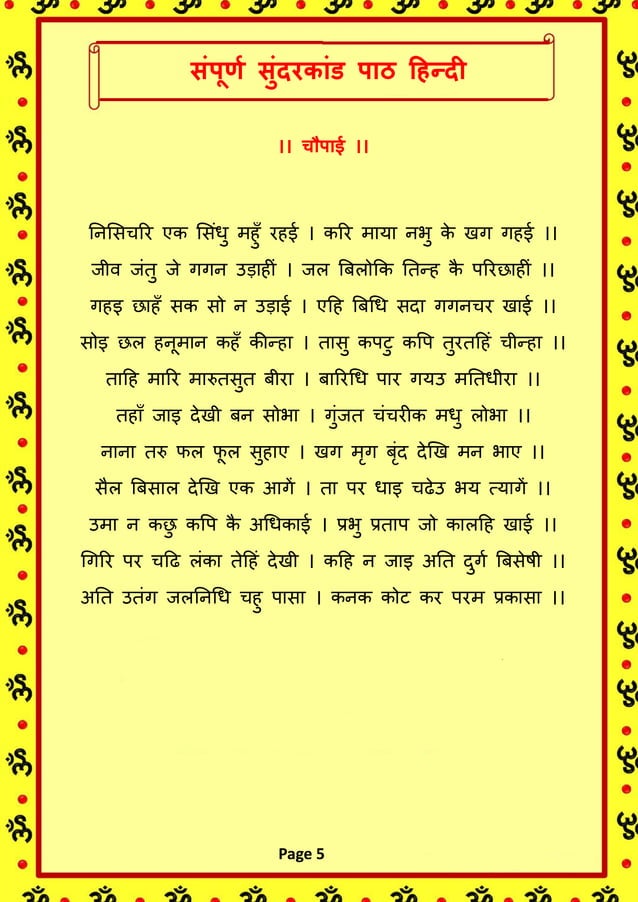 संपूर्ण सुंदरकांड पाठ हिन्दी
।। चौपाई ।।
निसिचरि एक सिंधु महुँ रहई । करि माया नभु के खग गहई ।।
जीव जंतु जे गगन उड़ाहीं । जल बिलोकि तिन्ह कै परिछाहीं ।।
गहइ छाहँ सक सो न उड़ाई । एहि बिधि सदा गगनचर खाई ।।
सोइ छल हनूमान कहँ कीन्हा । तासु कपटु कपि तुरतहिं चीन्हा ।।
ताहि मारि मारुतसुत बीरा । बारिधि पार गयउ मतिधीरा ।।
तहाँ जाइ देखी बन सोभा । गुंजत चंचरीक मधु लोभा ।।
नाना तरु फल फूल सुहाए । खग मृग बृंद देखि मन भाए ।।
सैल बिसाल देखि एक आगें । ता पर धाइ चढेउ भय त्यागें ।।
उमा न कछु कपि कै अधिकाई । प्रभु प्रताप जो कालहि खाई ।।
गिरि पर चढि लंका तेहिं देखी । कहि न जाइ अति दुर्ग बिसेषी ।।
अति उतंग जलनिधि चहु पासा । कनक कोट कर परम प्रकासा ।।
Page 5